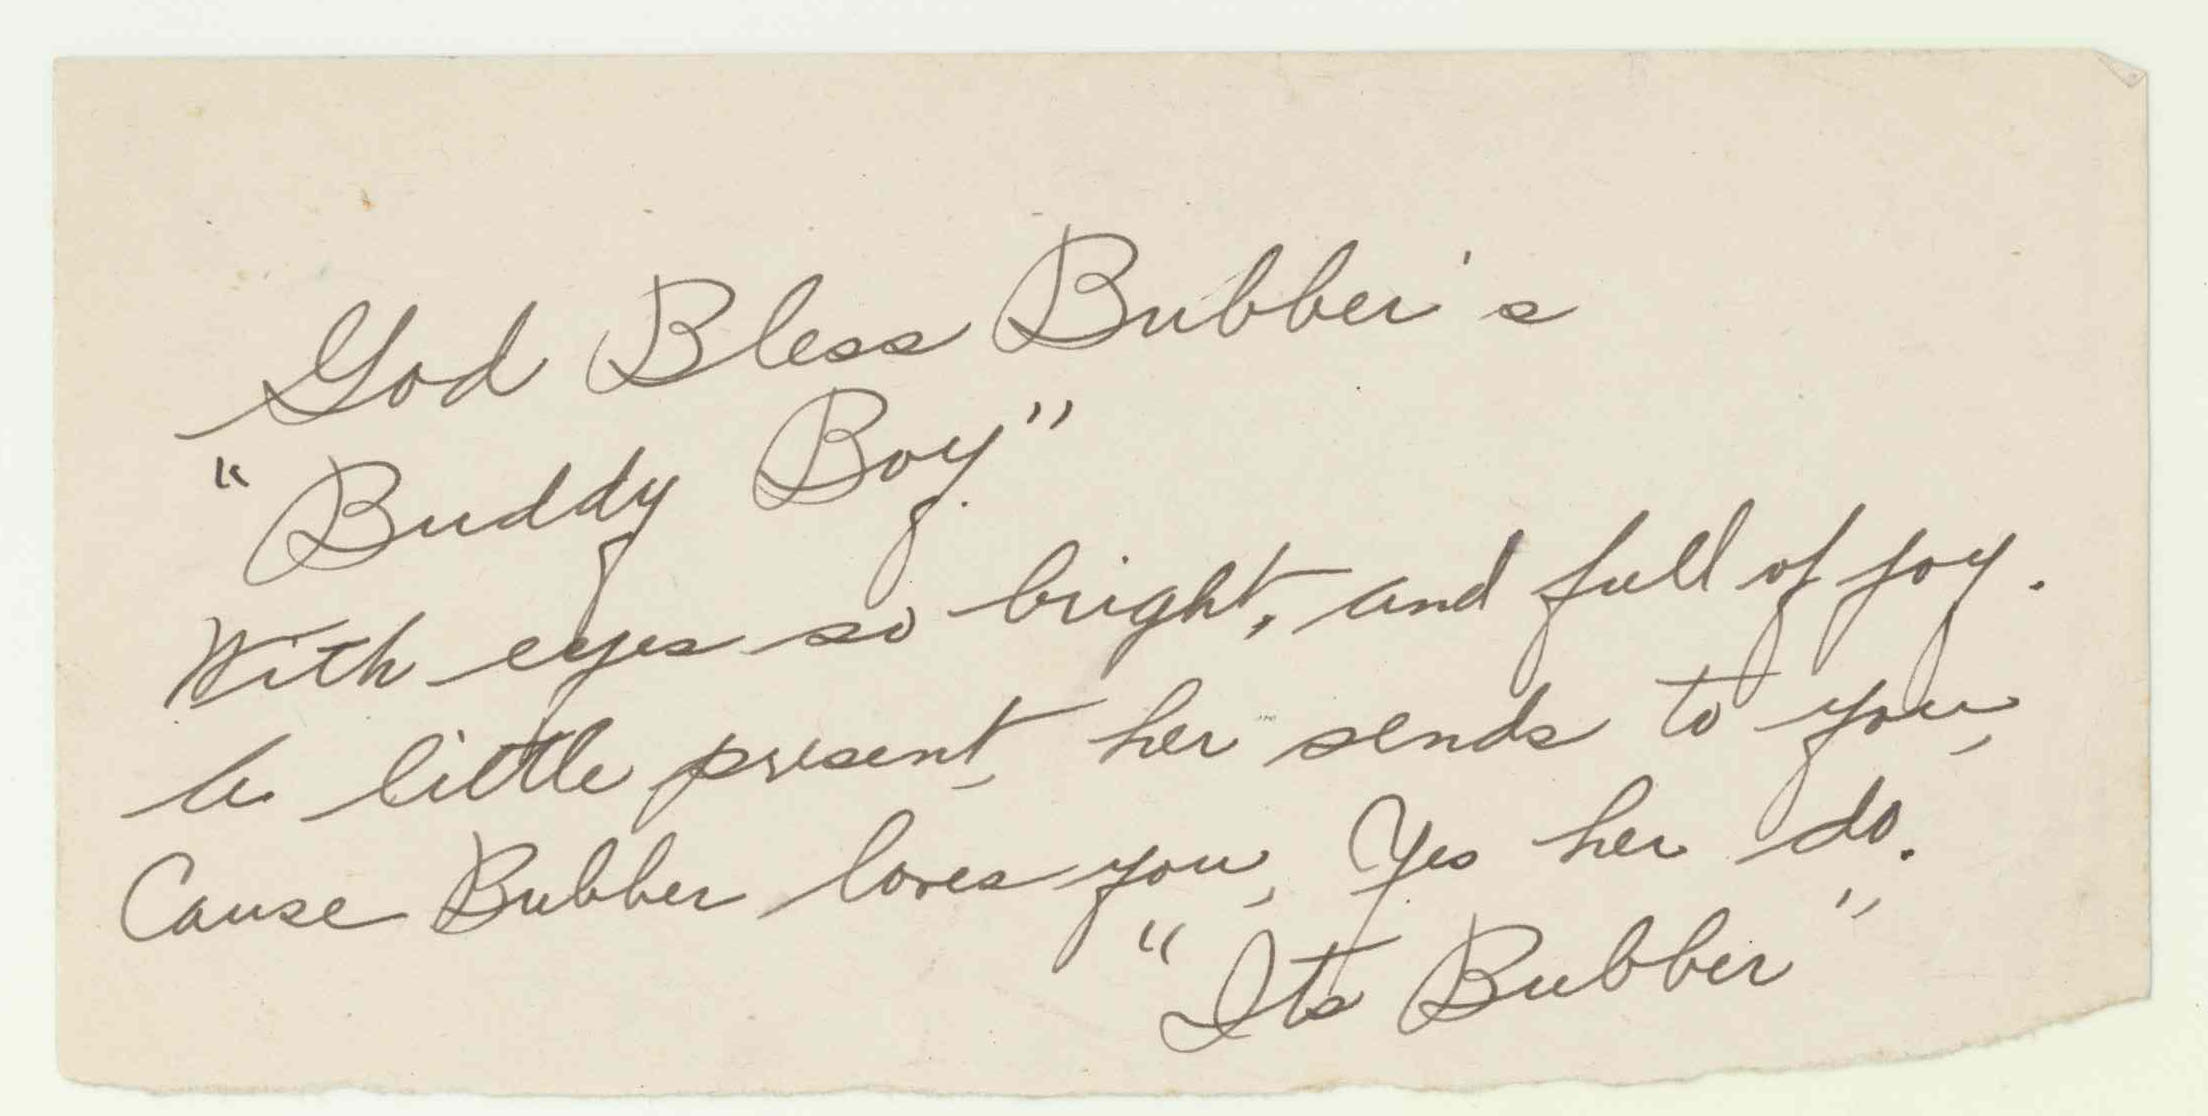 God Bless Bubber's
"Buddy Boy"
With eyes so bright, and full of joy.
A little present, her sends to you,
Cause Bubber loves you, Yes her do.
"Its Bubber"